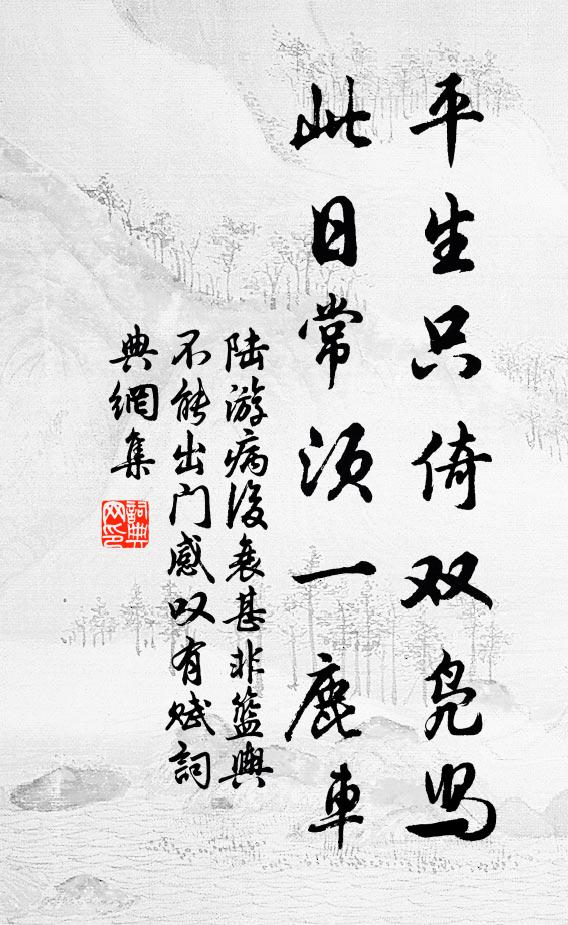 平生只倚双凫舄
此日常须一鹿車
陆游病後衰甚非籃輿
不能出门感叹有赋詞
典網集
詞典
网印